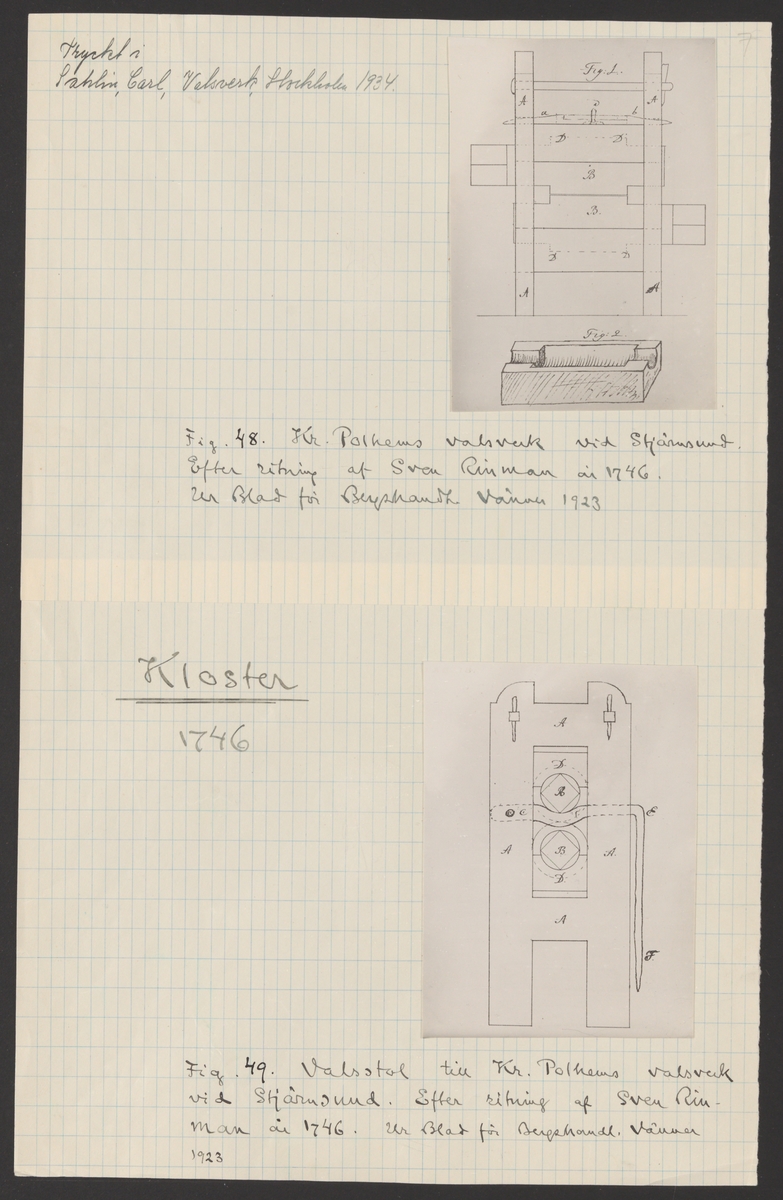 7
Tryckt i
Sahlin, Carl, Valsverk, Stockholm 1934.
Fig. 1.
A A
a c d b
D D
B
B.
D D
A A
Fig. 2
Fig. 48. Kr. Polhems valsverk vid Stjärnsund.
Efter ritning af Sven Rinman år 1746.
Ur Blad för Bergshandt. Vänner 1923
Kloster
1746
A
D.
B
C E
A B A.
D.
A
F.
Fig. 49. Valsstol till Kr. Polhems valsverk
vid Stjärnsund. Efter ritning af Sven Rin-
man år 1746. Ur Blad för Bergshandl. Vänner
1923